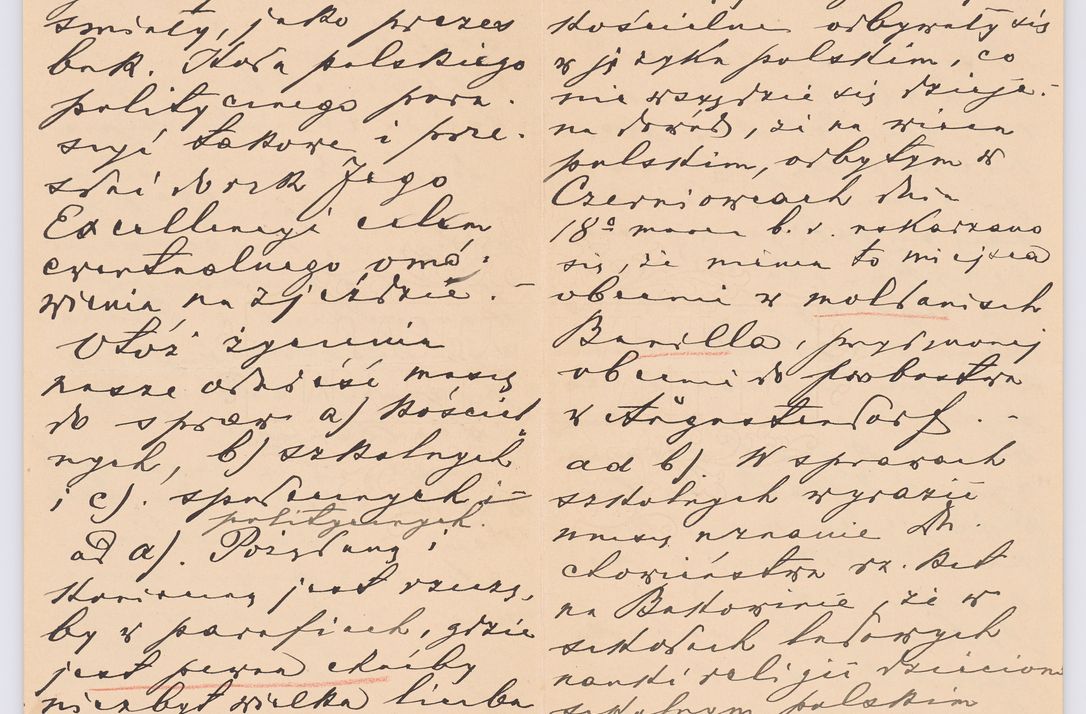 śmiały, jako prezes
buk. Koła polskiego
politycznego poru-
szyć takowe i prze-
słać do rąk Jego
Excellencyi celem
ewentualnego omó-
wienia na zjeździe. -
Otóż życzenia
nasze odnieść muszę
do spraw a) kościel-
nych, b) szkolnych
i c). społecznych i
politycznych.
ad a). Pożądaną i
konieczną jest rzeczą,
by w parafiach, gdzie
jest pewna choćby
niezbyt wielka liczba
kościelne odbywały się
w języku polskim, co
nie wszędzie się dzieje. -
na dowód, że na wiecu
polskim, odbytym w
Czerniowcach dnia
18º marca b. r. uskarżano
się, że niema to miejsca
obecnie w mołdawskich
Banilla, przydzielonej
obecnie do probostwa
w Augustendorf. -
ad b). W sprawach
szkolnych wyrazić
muszę uznanie dla
duchowieństwa rz. kat
na Bukowinie, że w
szkołach ludowych
nauki religii dzieciom
szkolnym polskim